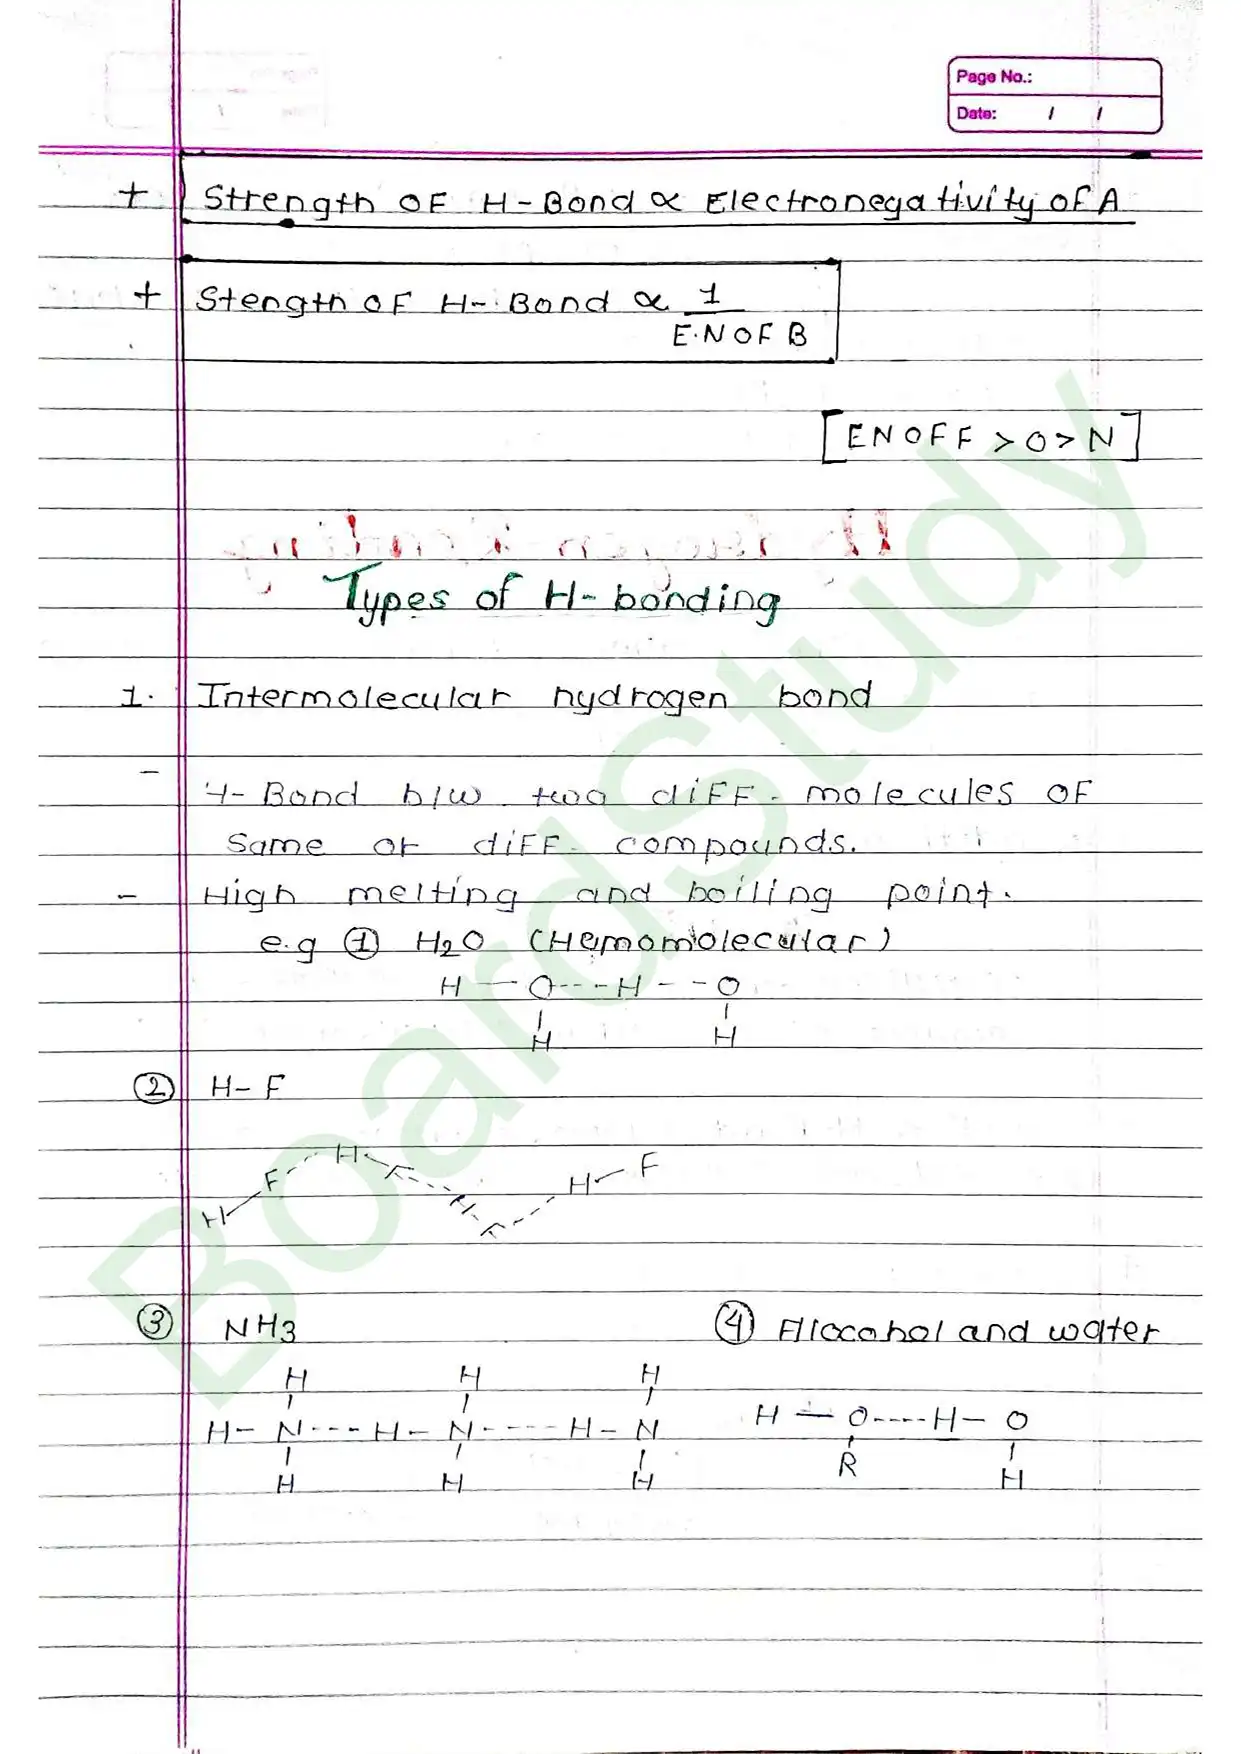 Page No.:
Date: / /
+ Strength OF H-Bond ∝ Electronegativity OF A
+ Stength OF H-Bond ∝ 1
E.N OF B
[EN OF F > O > N]
Types of H-bonding
1. Intermolecular hydrogen bond
- H-Bond b/w two diFF. molecules OF
Same or diFF. compounds.
- High melting and boiling point.
e.g ① H2O (Hemomolecular)
H — O --- H - - O
H H
② H-F
H — F --- H — F --- H --- F --- H — F
③ NH3 ④ Alocohol and water
H H H
H - N --- H - N ---- H - N H — O ---- H - O
H H H R H
BoardStudy